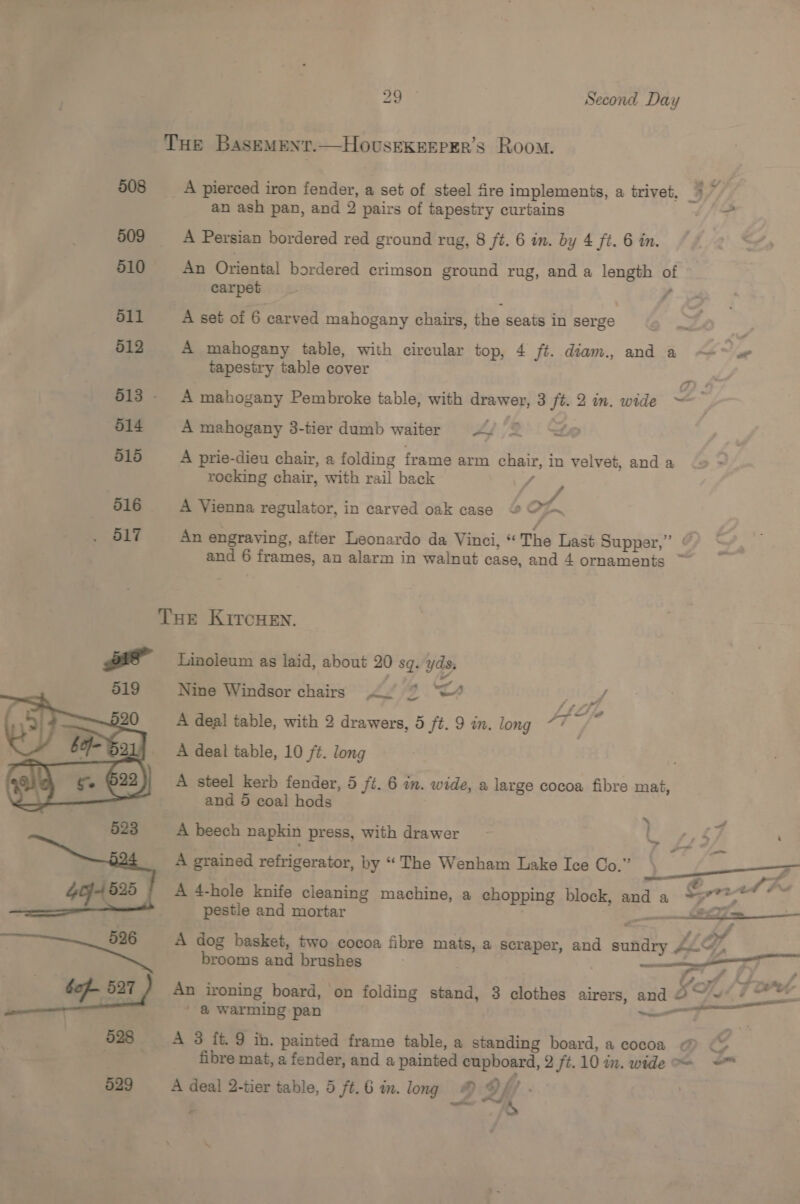 29 Second Day
THE BASEMENT.—HOUSEKEEPER'S ROOM.
508 A pierced iron fender, a set of steel fire implements, a trivet,
an ash pan, and 2 pairs of tapestry curtains
509 A Persian bordered red ground rug, 8 ft. 6 in. by 4 ft. 6 in.
510 An Oriental bordered crimson ground rug, and a length of
carpet
511 A set of 6 carved mahogany chairs, the seats in serge
512 A mahogany table, with circular top, 4 ft. diam., and a
tapestry table cover
513 A mahogany Pembroke table, with drawer, 3 ft. 2 in. wide
514 A mahogany 3-tier dumb waiter
515 A prie-dieu chair, a folding frame arm chair, in velvet, and a
rocking chair, with rail back
516 A Vienna regulator, in carved oak case
517 An engraving, after Leonardo da Vinci, “The Last Supper,”
and 6 frames, an alarm in walnut case, and 4 ornaments
THE KITCHEN.
518 Linoleum as laid, about 20 sq. yds.
519 Nine Windsor chairs
520 A deal table, with 2 drawers, 5 ft. 9 in. long
521 A deal table, 10 ft. long
522 A steel kerb fender, 5 ft. 6 in. wide, a large cocoa fibre mat,
and 5 coal hods
523 A beech napkin press, with drawer
524 A grained refrigerator, by “The Wenham Lake Ice Co.”
525 A 4-hole knife cleaning machine, a chopping block, and a
pestle and mortar
526 A dog basket, two cocoa fibre mats, a scraper, and sundry
brooms and brushes
527 An ironing board, on folding stand, 3 clothes airers, and
a warming pan
528 A 3 ft. 9 in. painted frame table, a standing board, a cocoa
fibre mat, a fender, and a painted cupboard, 2 ft. 10 in. wide
529 A deal 2-tier table, 5 ft. 6 in. long